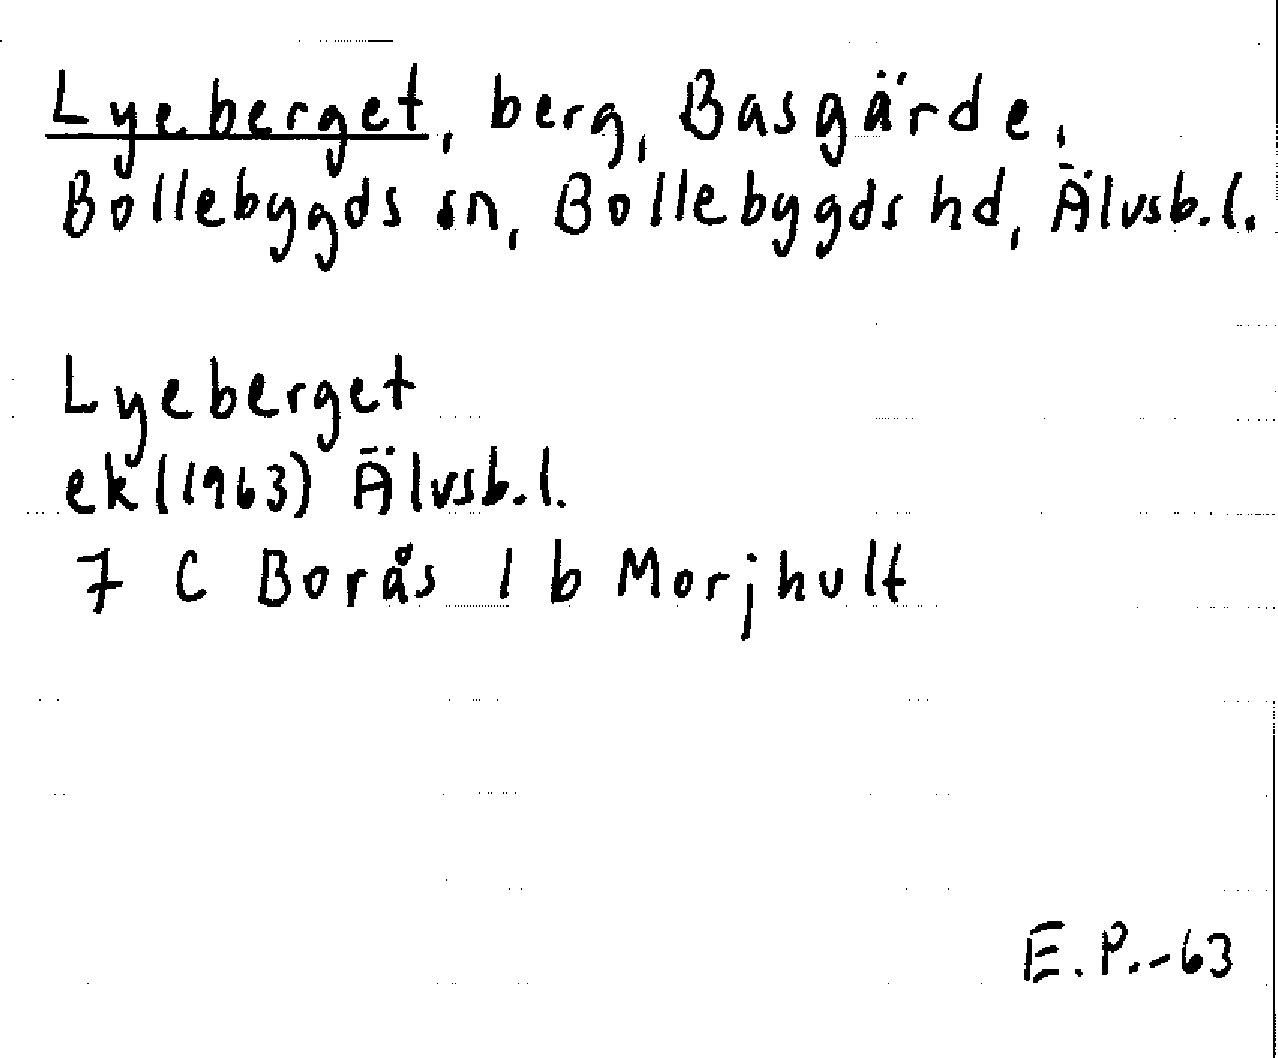 Lyeberget, berg, Basgärde,
Bollebygds sn, Bollebygds hd, Älvsb.l.
Lyeberget
ek (1963) Älvsb.l.
7 C Borås 1 b Morjhult
E.P.-63